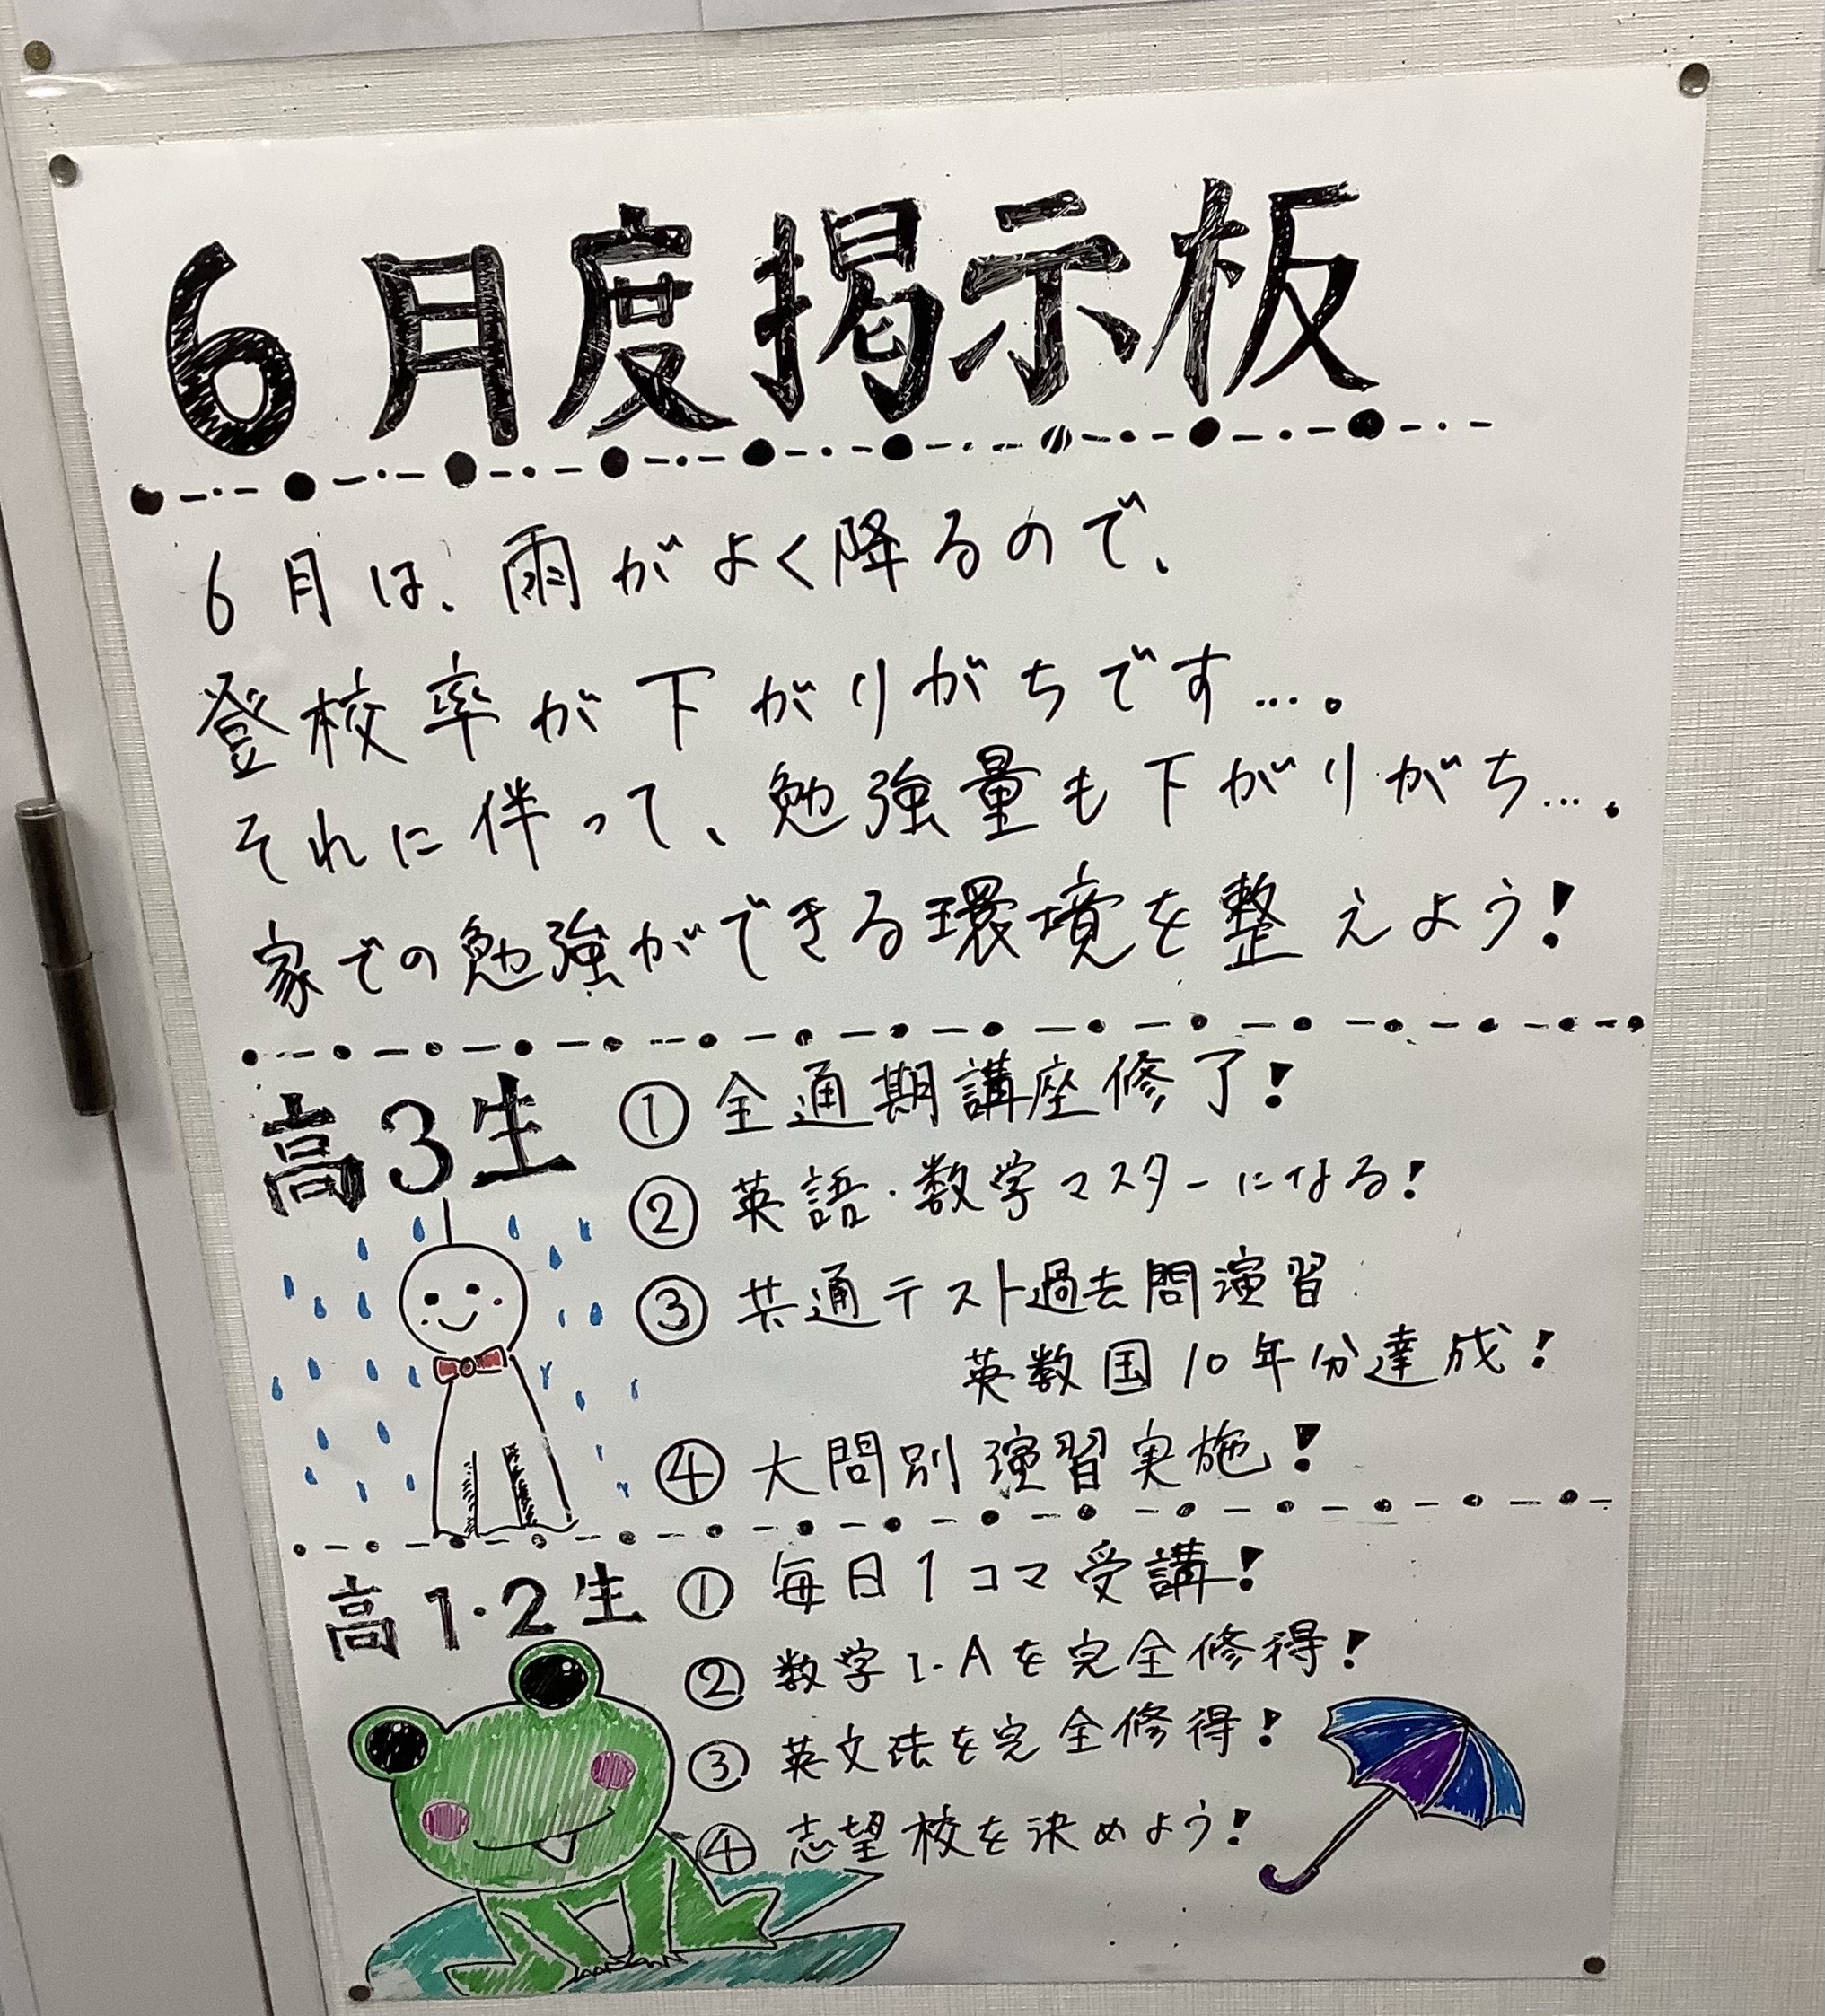 6月度掲示板
6月は、雨がよく降るので、
登校率が下がりがちです…。
それに伴って、勉強量も下がりがち…。
家での勉強ができる環境を整えよう!
高3生
①全通期講座修了!
②英語・数学マスターになる!
③共通テスト過去問演習
英数国10年分達成!
④大問別演習実施!
高1・2生
①毎日1コマ受講!
②数学I・Aを完全修得!
③英文法を完全修得!
④志望校を決めよう!